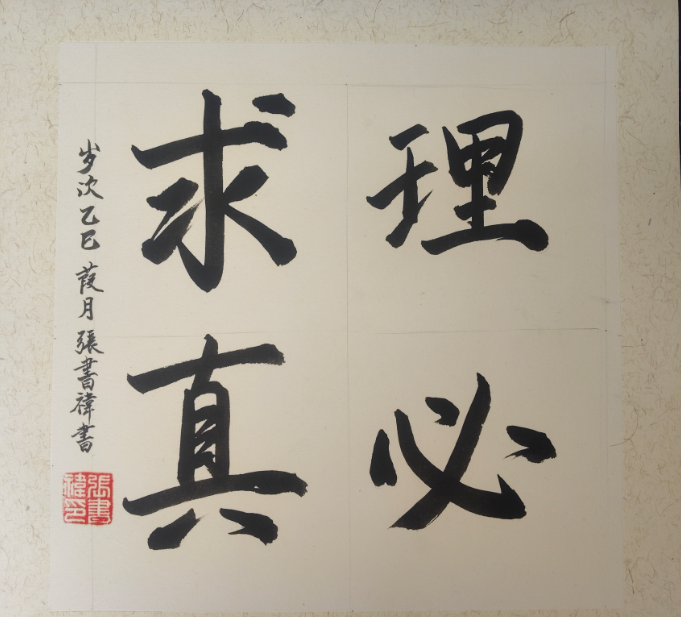 理必
求真
岁次乙巳葭月張書禕書
張書
禕印